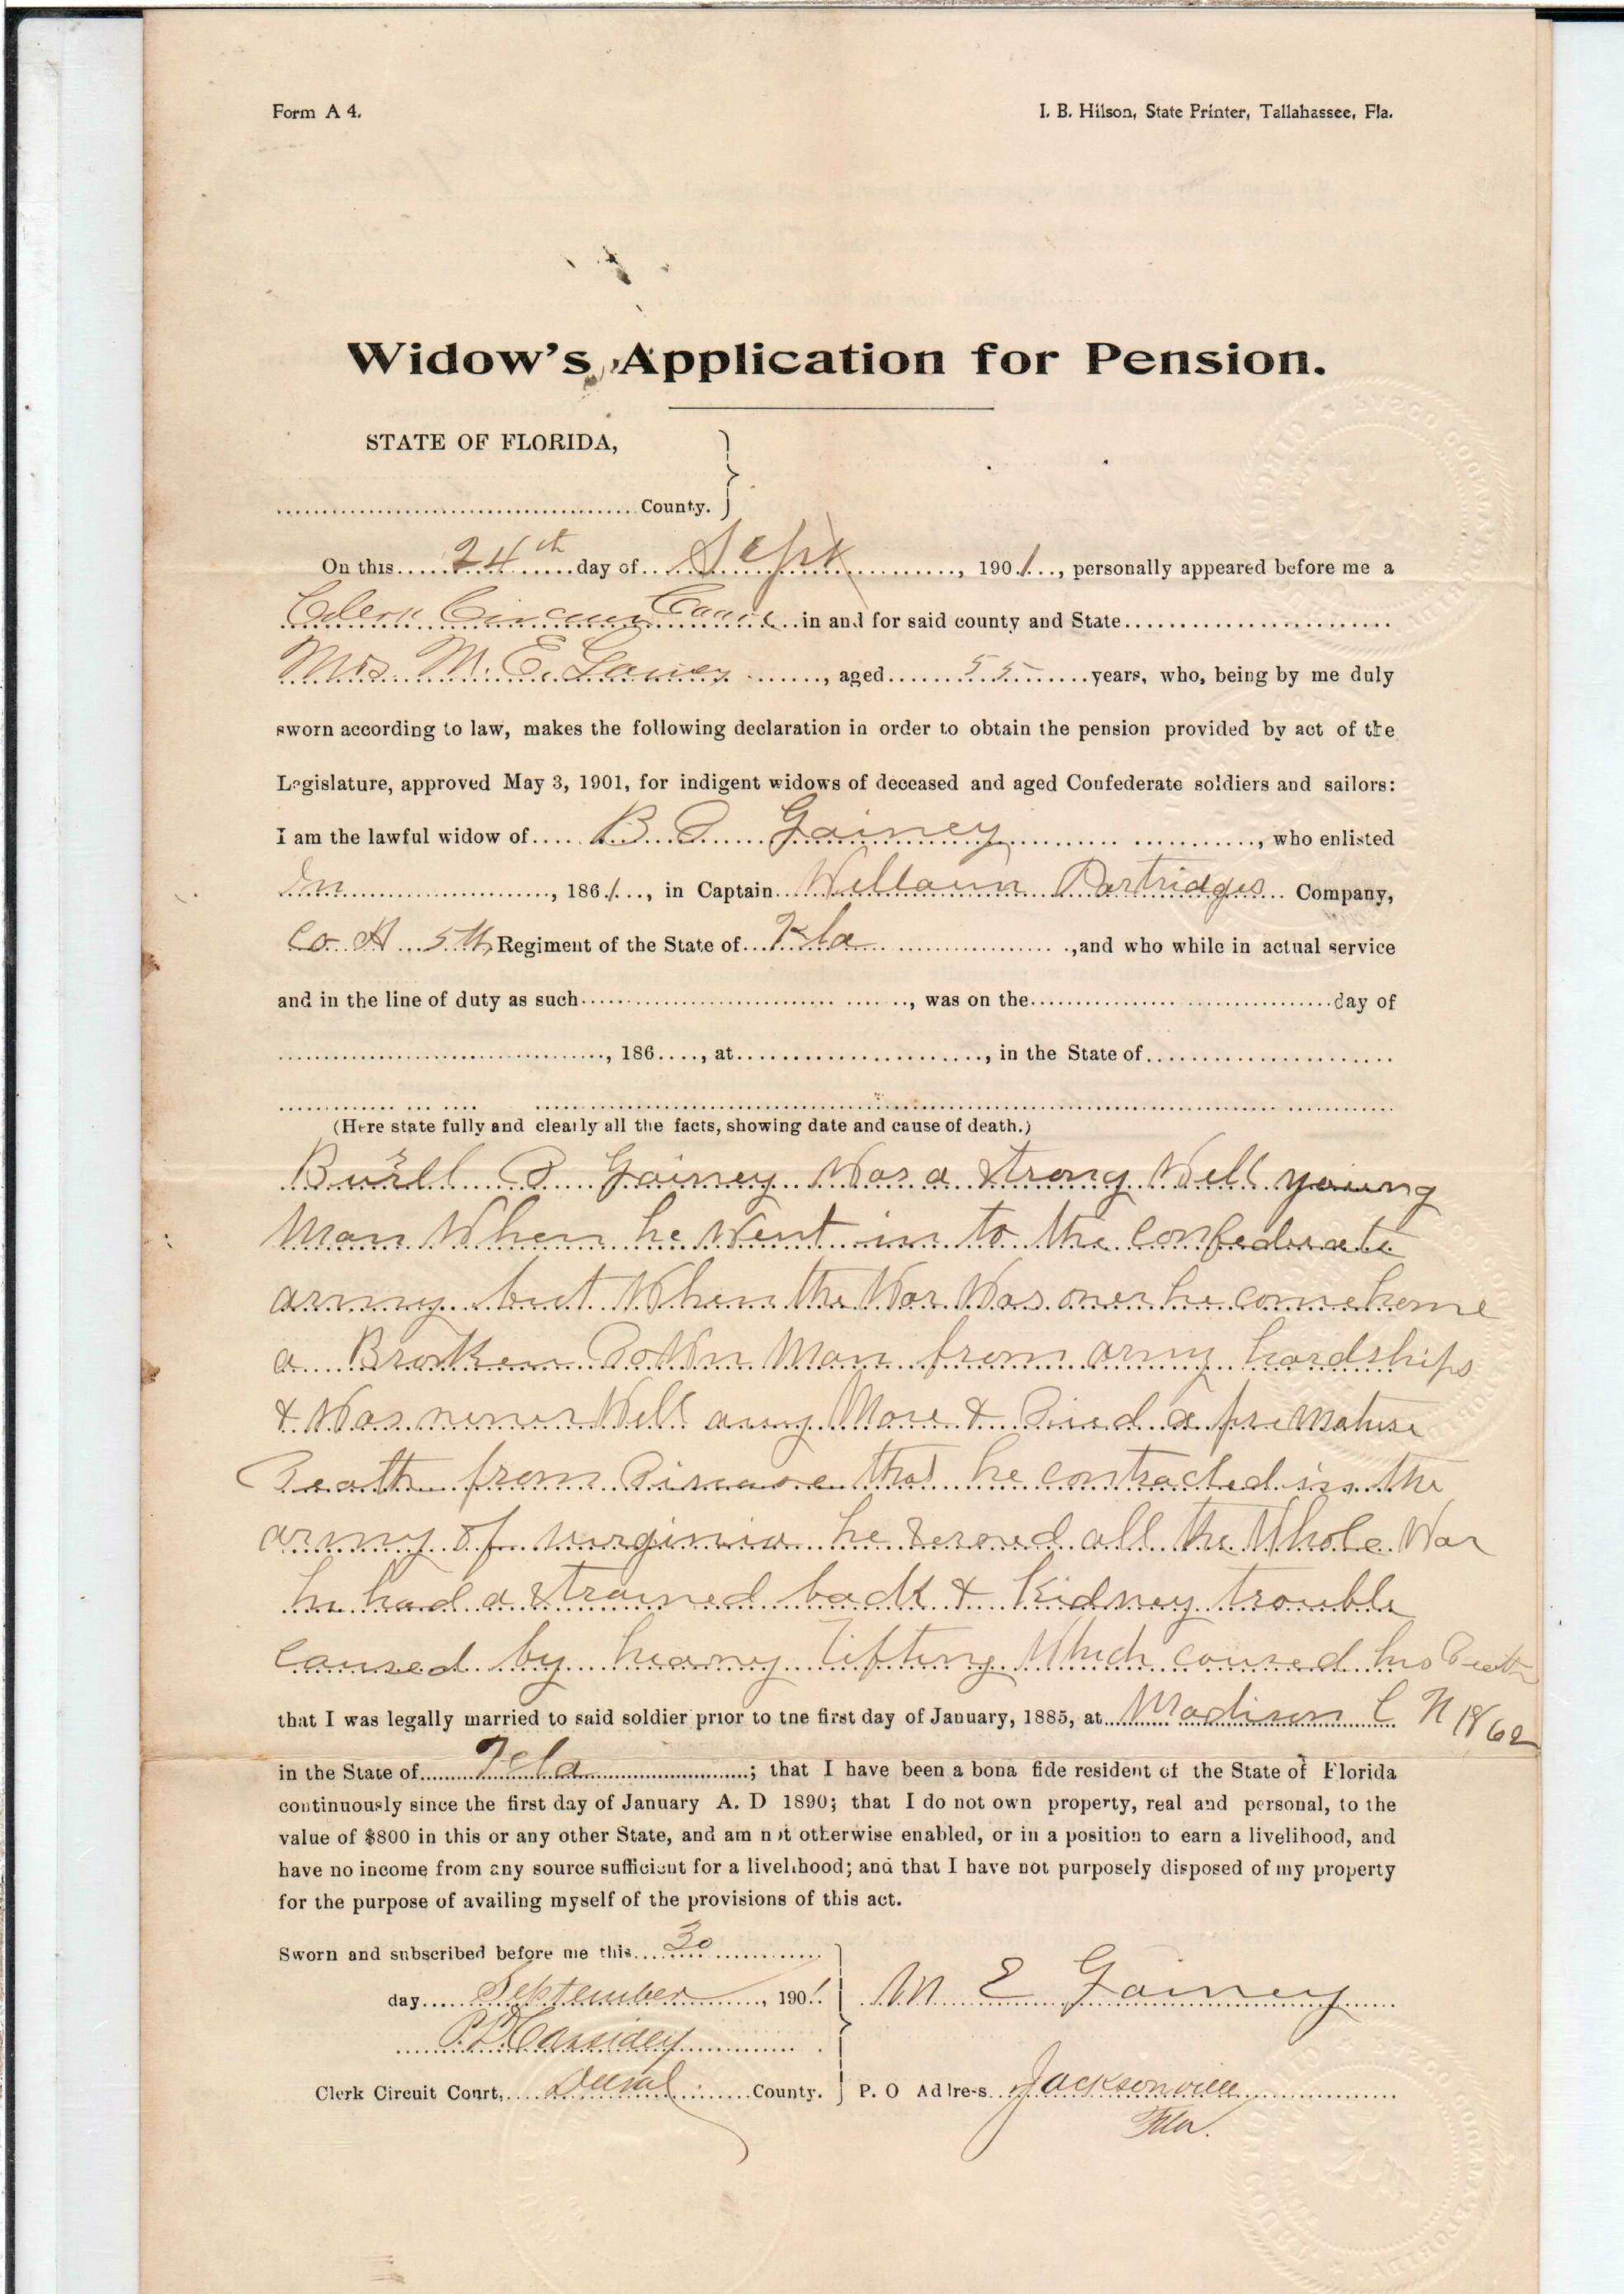 Form A 4.
I. B. Hilson, State Printer, Tallahassee, Fla.
Widow's Application for Pension.
STATE OF FLORIDA,
County.
On this 24th day of Sept, 1901, personally appeared before me a
Clerk Circuit Court in and for said county and State
Mrs. M. E. Gainey, aged 55 years, who, being by me duly
sworn according to law, makes the following declaration in order to obtain the pension provided by act of the
Legislature, approved May 3, 1901, for indigent widows of deceased and aged Confederate soldiers and sailors:
I am the lawful widow of B. D. Gainey, who enlisted
In, 1861, in Captain Willaim Partridges Company,
Co. H 5th Regiment of the State of Fla, and who while in actual service
and in the line of duty as such, was on the day of
, 186, at, in the State of
(Here state fully and clearly all the facts, showing date and cause of death.)
Burell D Gainey Was a Strong Well young
Man When he Went in to the confederate
army but When the War Was over he come home
a Broken Down Man from army hardships
& Was never Well any More & Died a preMature
Death from Disease that he contracted in the
army of virginia he served all the Whole War
he had a strained back & Kidney trouble
caused by heavy lifting Which caused his Death
that I was legally married to said soldier prior to the first day of January, 1885, at Madison C H 1862
in the State of Fla; that I have been a bona fide resident of the State of Florida
continuously since the first day of January A. D 1890; that I do not own property, real and personal, to the
value of $800 in this or any other State, and am not otherwise enabled, or in a position to earn a livelihood, and
have no income from any source sufficient for a livelihood; and that I have not purposely disposed of my property
for the purpose of availing myself of the provisions of this act.
Sworn and subscribed before me this 30
day September, 1901.
M E Gainey
P. D. Cassidey
Clerk Circuit Court, Duval County.
P. O Addre-s Jacksonville
Fla.